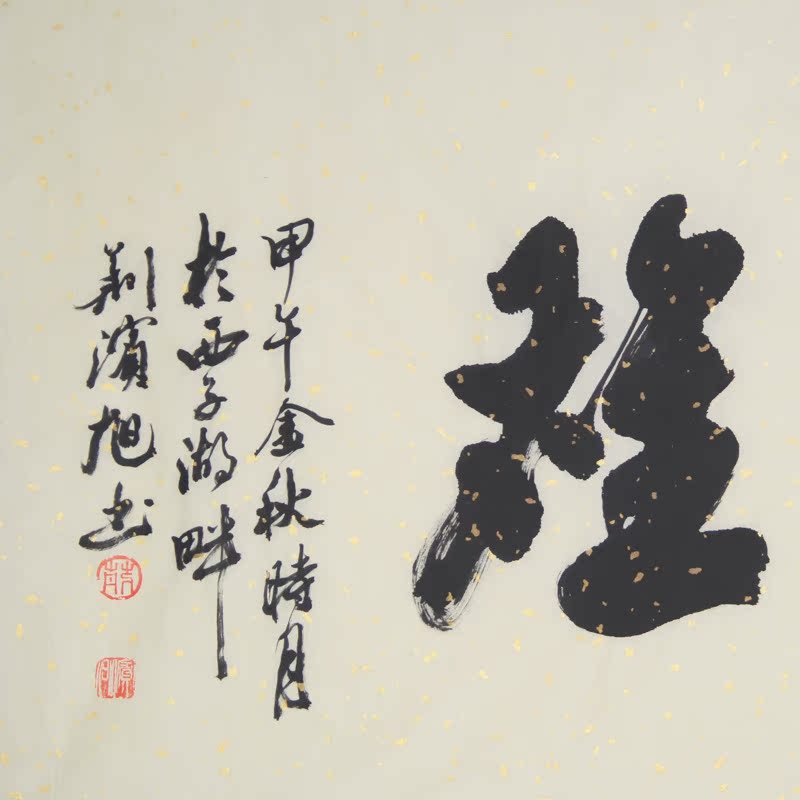 程
甲午金秋時月
於西子湖畔
荆濱旭书